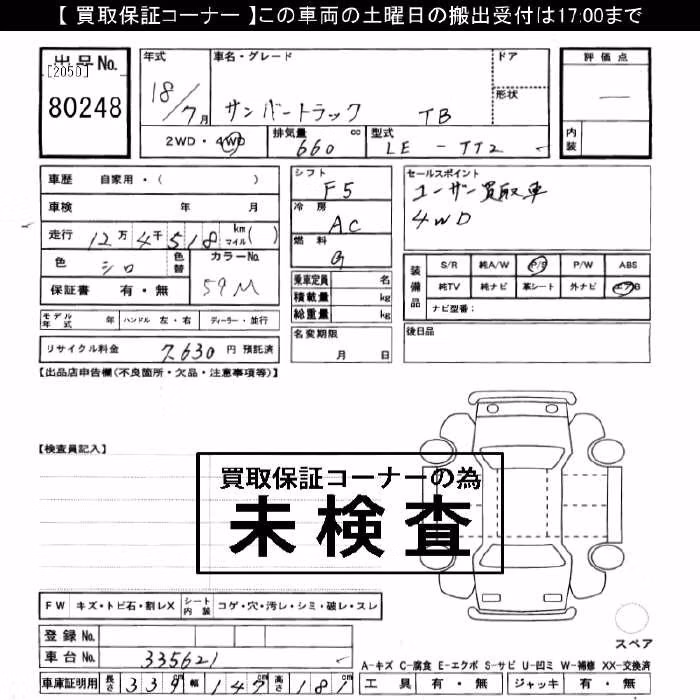 【 買取保証コーナー 】この車両の土曜日の搬出受付は17:00まで
出品No.
[2050]
80248
年式
18/7月
車名・グレード
サンバートラック TB
ドア
形状
評価点
—
内装
2WD・4WD
排気量 660 cc
型式 LE - TT2
車歴 自家用・( )
車検 年 月
走行 12万4千518 km マイル( )
色 シロ
色替
カラーNo. 59M
保証書 有・無
シフト F5
冷房 AC
燃料 G
乗車定員 名
積載量 kg
総重量 kg
セールスポイント
ユーザー買取車
4WD
装備品
S/R 純A/W P/S P/W ABS
純TV 純ナビ 革シート 外ナビ エアB
ナビ型番：
モデル年式 年 ハンドル 左・右 ディーラー・並行
名変期限 月 日
後日品
リサイクル料金 7,630 円 預託済
【出品店申告欄(不良箇所・欠品・注意事項等)】
【検査員記入】
買取保証コーナーの為
未検査
FW キズ・トビ石・割レX シート内装 コゲ・穴・汚レ・シミ・破レ・スレ
登録No.
車台No. 335621
スペア
A-キズ C-腐食 E-エクボ S-サビ U-凹ミ W-補修 XX-交換済
車庫証明用 長さ 339 幅 147 高さ 181
工具 有・無 ジャッキ 有・無